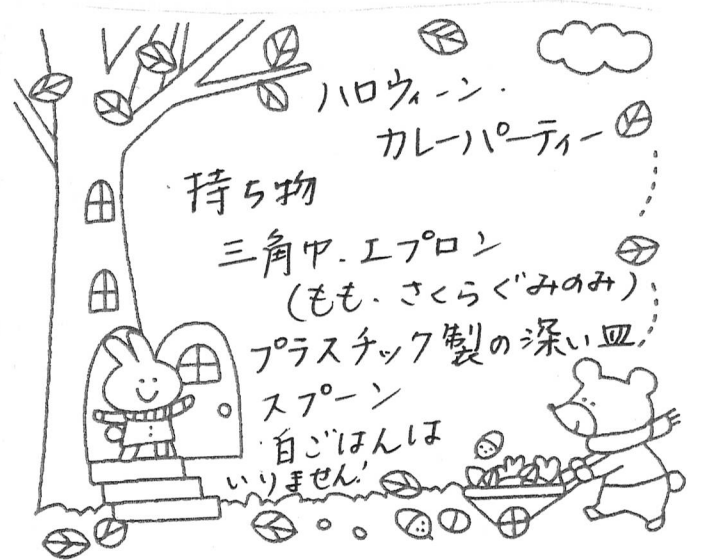 ハロウィーン・
カレーパーティー
持ち物
三角巾、エプロン
(もも、さくらぐみのみ)
プラスチック製の深い皿
スプーン
白ごはんは
いりません!